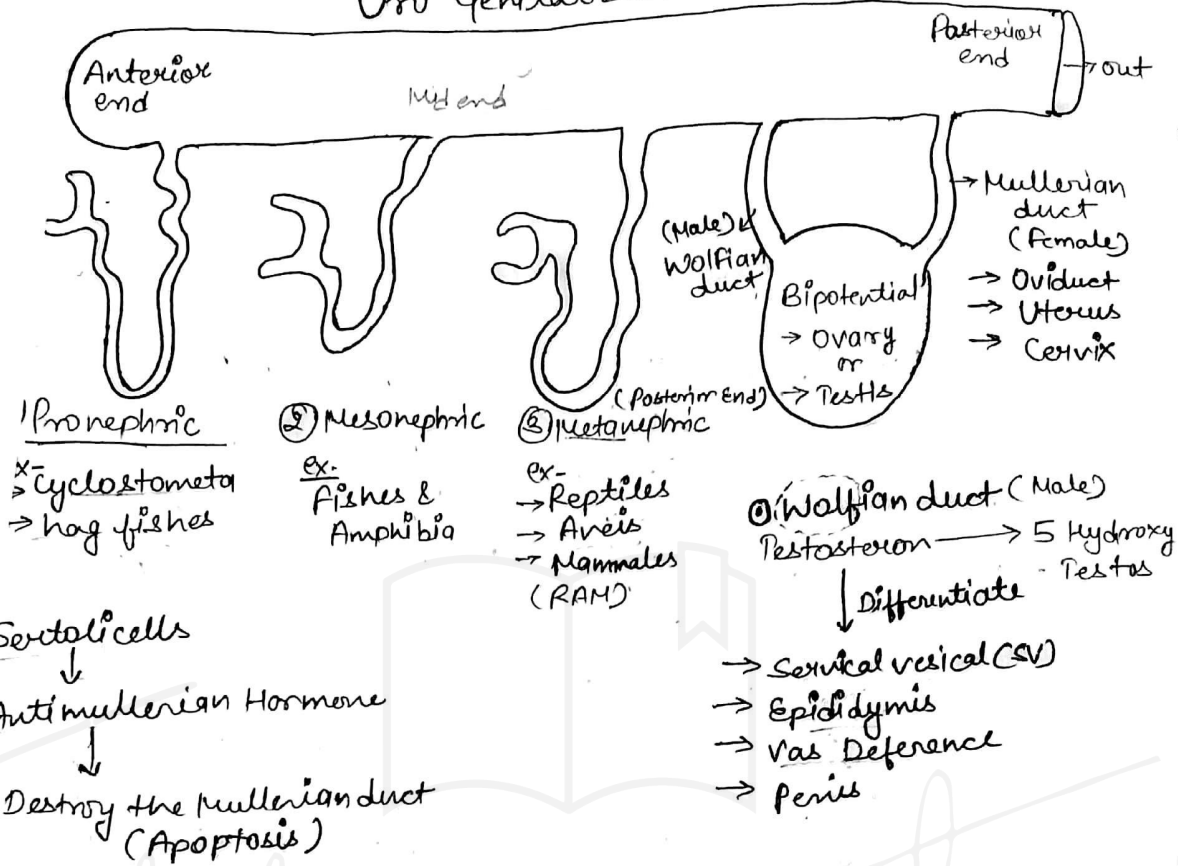 Uro Genital
Anterior
end
Mid end
Posterior
end
→ out
(Male)
Wolfian
duct
→ Mullerian
duct
(Female)
→ Oviduct
→ Uterus
→ Cervix
Bipotential
→ Ovary
or
→ Testis
(Posterior End)
1 Pronephric
x-
> Cyclostometa
→ hag fishes
② Mesonephric
ex.
Fishes &
Amphibia
③ Metanephric
ex-
→ Reptiles
→ Aveis
→ Mammales
(RAM)
Wolfian duct (Male)
Testosteron → 5 Hydroxy
- Testos
↓ Differentiate
→ Servical vesical (SV)
→ Epididymis
→ Vas Deference
→ Penies
Sertoli cells
↓
Antimullerian Hormone
↓
Destroy the Mullerian duct
(Apoptosis)